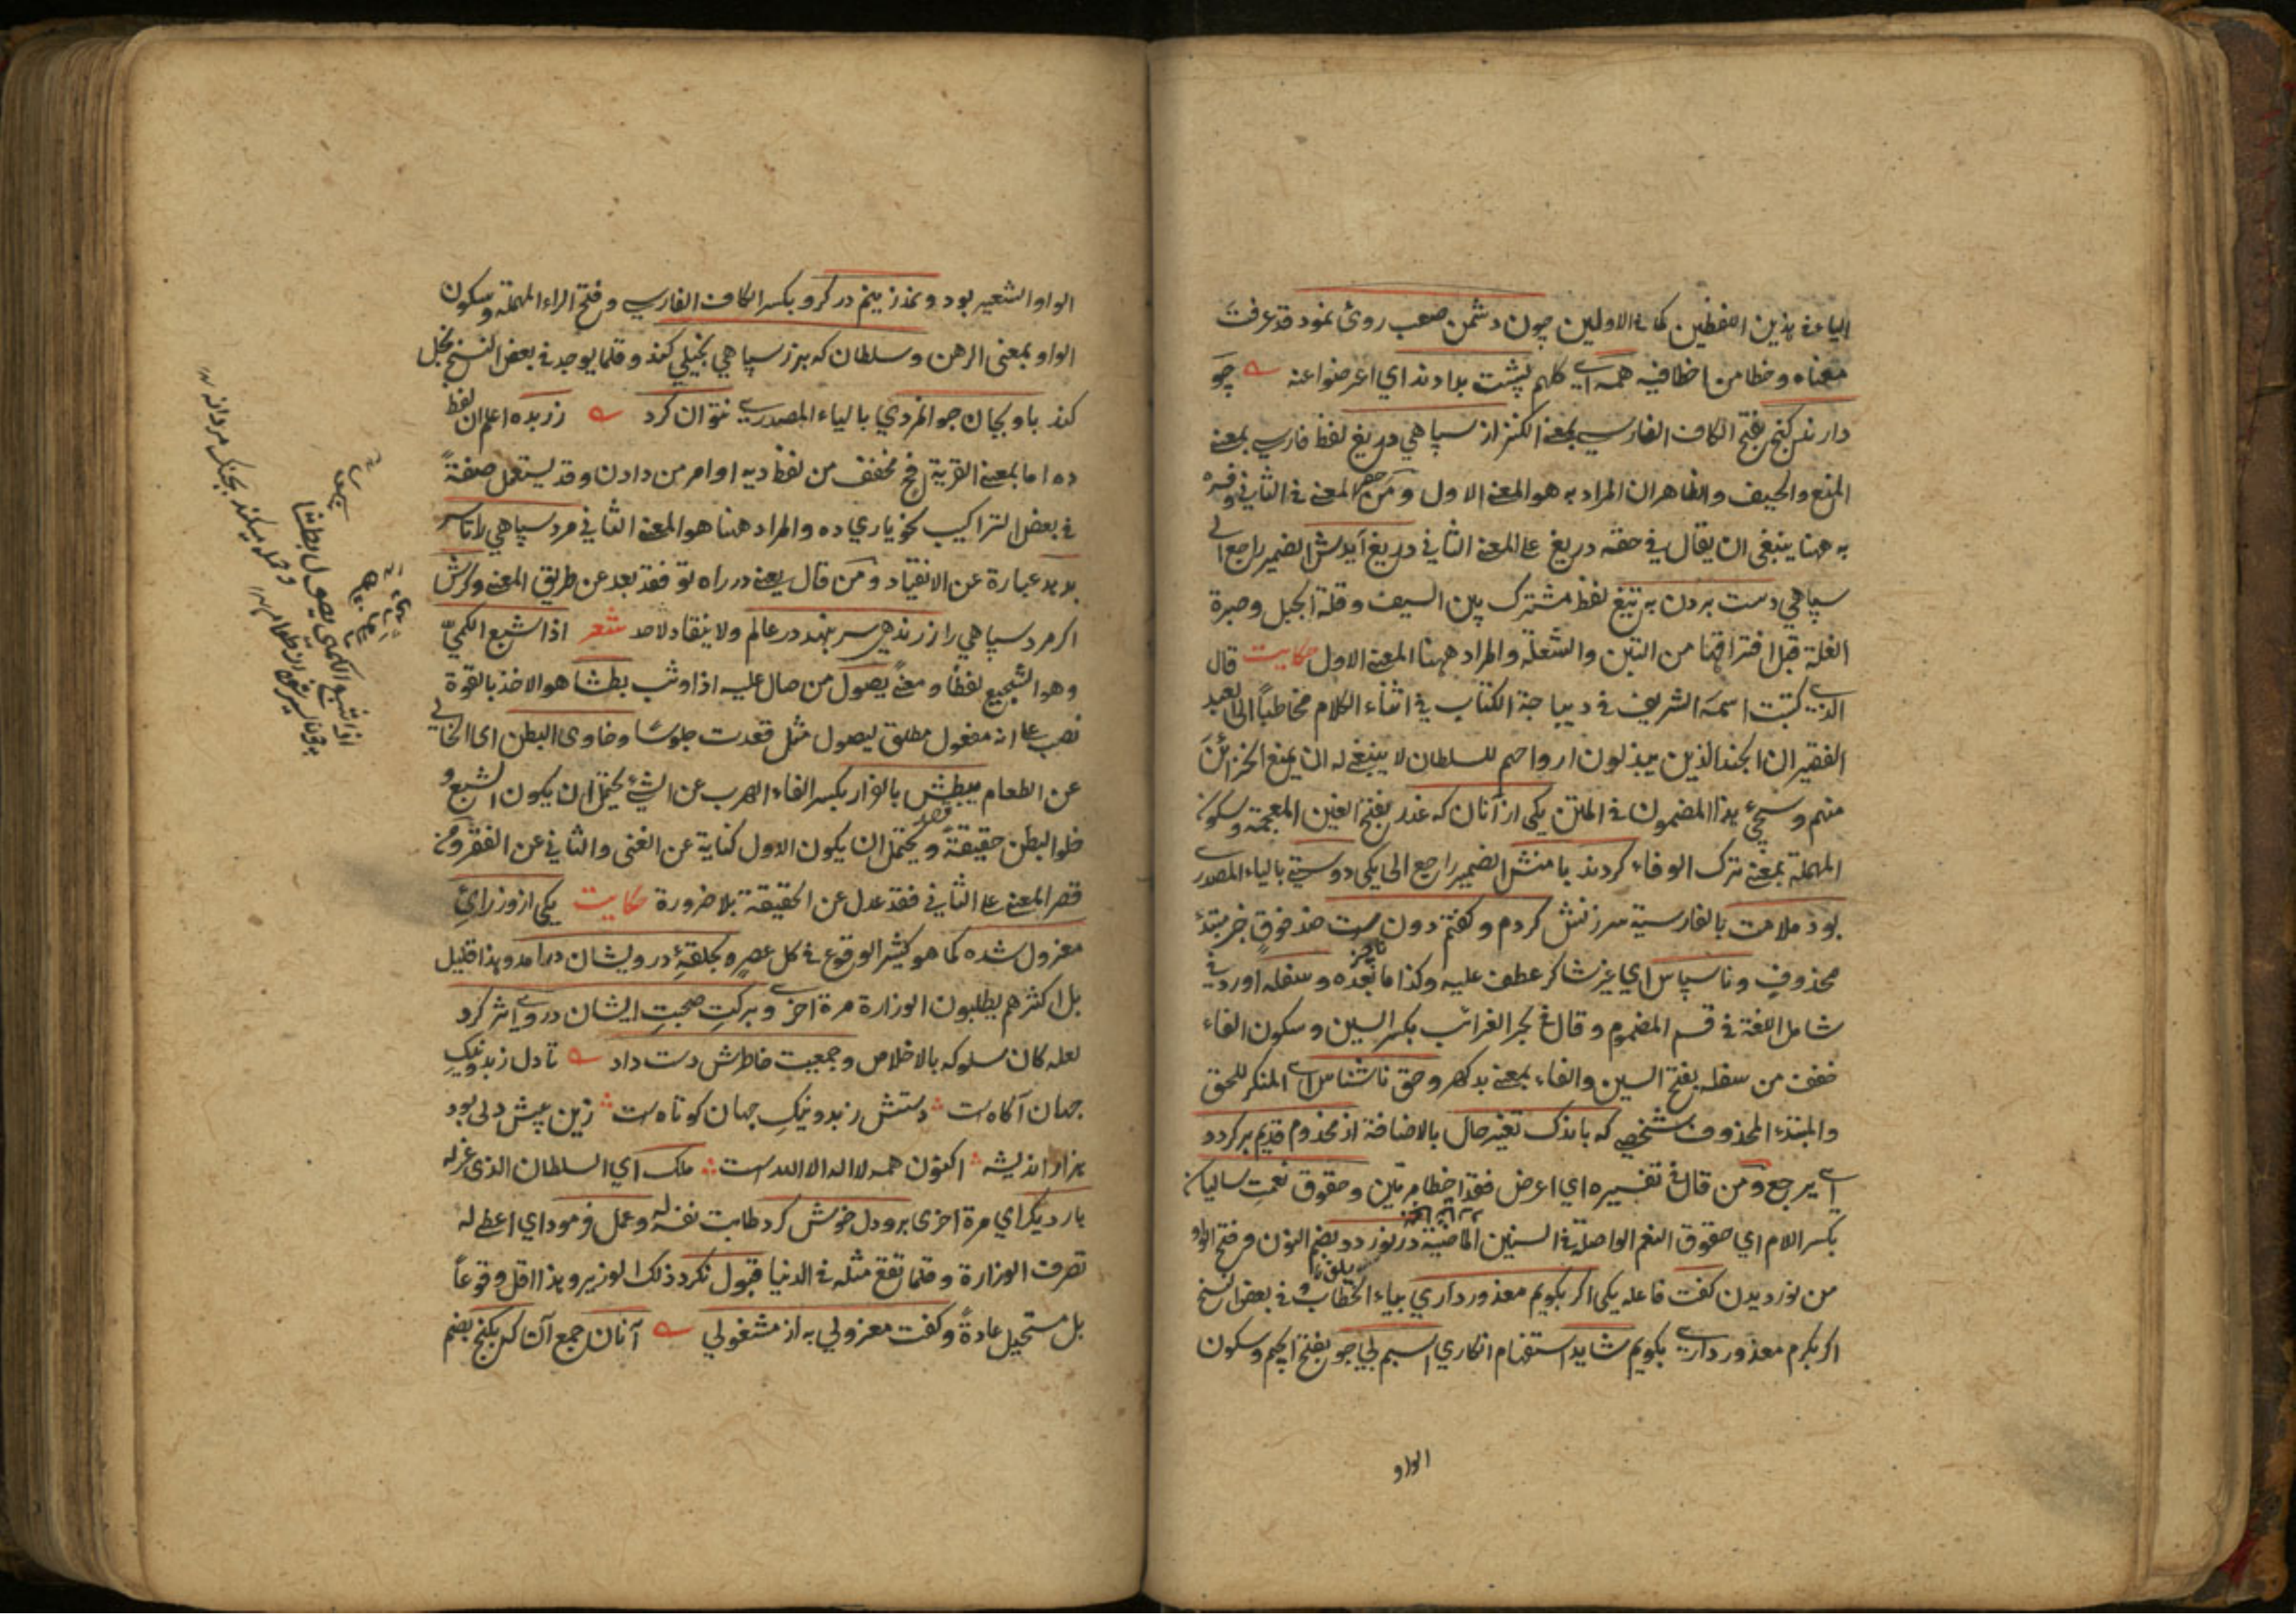 الياء فى هذين اللفظين كما فى الاولين چون دشمن صعب روى نمود قد عرفت
معناه وخطا من اخطا فيه همه اى كلهم پشت بدادند اي اعرضوا عنه چو
دارند گنج بفتح الكاف الفارسي بمعنى الكنز از سپاهي دريغ لفظ فارسي بمعنى
المنع والحيف والظاهر ان المراد به هو المعنى الاول ومن حصر المعنى فى الثاني وفسره
به ههنا ينبغى ان يقال في حقه دريغ على المعنى الثاني دريغ آيدش الضمير راجع الى
سپاهي دست بردن به تيغ لفظ مشترك بين السيف وقلة الجبل وصبرة
الغلة قبل افتراقها من التبن والشعلة والمراد ههنا المعنى الاول حكايت قال
الذى كتبت اسمه الشريف فى ديباجة الكتاب في اثناء الكلام مخاطباً الى العبد
الفقير ان الجند الذين يبذلون ارواحهم للسلطان لا ينبغى له ان يمنع الخزائن
منهم وسيجئ هذا المضمون فى المتن يكى از آنان كه غدر بفتح الغين المعجمة وسكون
المهملة بمعنى ترك الوفاء كردند با منش الضمير راجع الى يكى دوستي بالياء المصدرى
بود ملامت بالفارسية سرزنش كردم وكفتم دون ست ضد فوق خبر مبتدأ
محذوف وناسپاس اي غير شاكر عطف عليه وكذا ما بعده وسفله اورد فى
شامل اللغة فى قسم المضموم وقال في بحر الغرائب بكسر السين وسكون الفاء
مخفف من سفله بفتح السين والفاء بمعنى بدگهر وحق ناشناس اى المنكر للحق
والمبتدء المحذوف شخصي كه باندك تغير حال بالاضافة از مخدوم قديم بر كردد
اى يرجع ومن قال في تفسيره اي اعرض فقد اخطا مرتين وحقوق نعمت ساليان
بكسر اللام اي حقوق النعم الواصلة فى السنين الماضية در نوردد بضم النون وفتح الواو
من نورديدن كفت فاعله يكى اكر بكويم معذور داري بياء الخطاب وفى بعض النسخ
اكر بكرم معذور دارى بكويم شايد استفهام انكاري اسبم بي جو بفتح الجيم وسكون
الواو
الواو الشعير بود ونمد زينم در كرو بكسر الكاف الفارسي وفتح الراء المهملة وسكون
الواو بمعنى الرهن وسلطان كه بزر سپاهي بخيلي كند وقلما يوجد فى بعض النسخ بخل
كند با وبجان جوانمردي بالياء المصدرى نتوان كرد زر بده اعلم ان لفظ
ده اما بمعنى القرية فح مخفف من لفظ ديه او امر من دادن وقد يستعمل صفةً
فى بعض التراكيب نحو ياري ده والمراد ههنا هو المعنى الثاني مرد سپاهي را تا سر
بدهد عبارة عن الانقياد ومن قال يعنى در راه تو فقد بعد عن طريق المعنى وكرش
اكر مرد سپاهي را زر ندهي سر بنهد در عالم ولا ينقاد لاحد شعر اذا شبع الكميّ
وهو الشجيع لفظاً ومعنًى يصول من صال عليه اذا وثب بطشا هو الاخذ بالقوة
نصب على انه مفعول مطلق ليصول مثل قعدت جلوسًا وخاوى البطن اى الخالي
عن الطعام يبطش بالفرار بكسر الفاء الهرب عن الشئ يحتمل ان يكون الشبع و
خلو البطن حقيقةً ويحتمل ان يكون الاول كناية عن الغنى والثاني عن الفقر ومن
قصر المعنى على الثاني فقد عدل عن الحقيقة بلا ضرورة حكايت يكى از وزرائ
معزول شده كما هو كثير الوقوع فى كل عصر وبحلقۀ درويشان درآمد وهذا قليل
بل اكثرهم يطلبون الوزارة مرة اخرى وبركتِ صحبتِ ايشان در وى اثر كرد
لعله كان سلوكه بالاخلاص وجمعيت خاطرش دست داد تا دل ز بد ونيكِ
جهان آكاه ست دستش ز بد ونيكِ جهان كوتاه ست زين پيش دلى بود
هزار انديشه اكنون همه لا اله الا الله ست ملك اي السلطان الذى عزله
بار ديكر اي مرة اخرى برو دل خوش كرد طابت نفسه له وعمل فرمود اي اعطى له
تصرف الوزارة وقلما تقع مثله فى الدنيا قبول نكرد ذلك الوزير وهذا اقل وقوعاً
بل مستحيل عادةً وكفت معزولي به از مشغولي آنان جمع آن كه بكنج بضم
اذا شبع الكمى يصول بطشا
وحمله ميكند بجنك مردانه